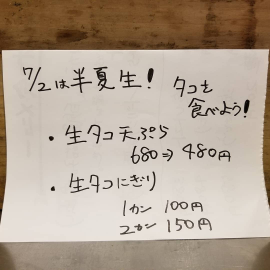 7/2は半夏生!
タコを
食べよう!
・生タコ天ぷら
680⇒480円
・生タコにぎり
1カン 100円
2カン 150円